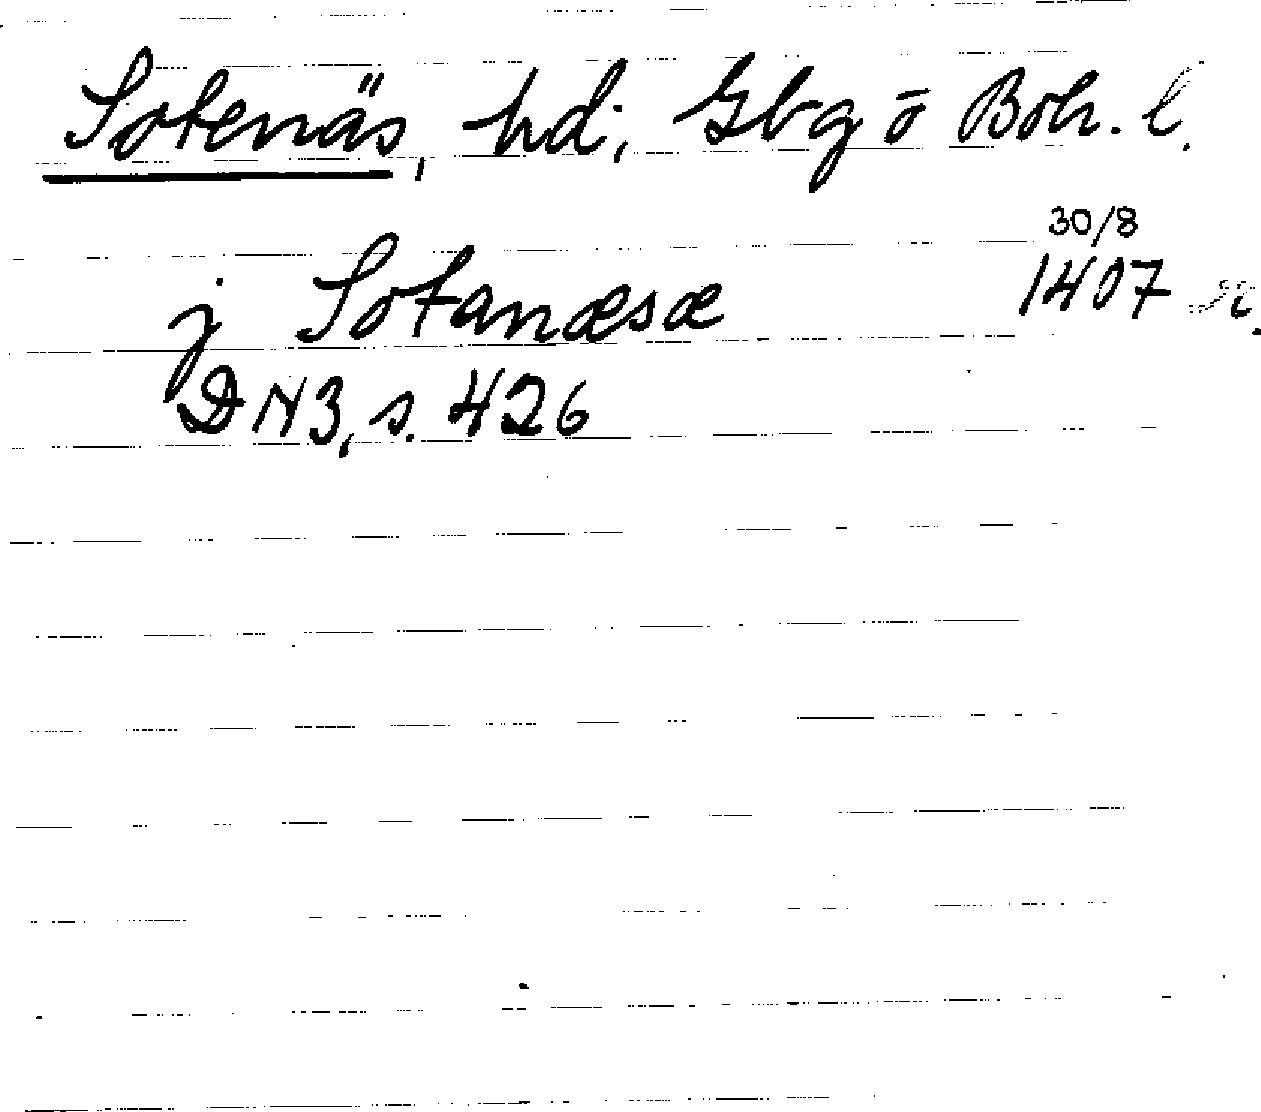 Sotenäs, hd, Gbg o Boh. l.
30/8
j Sotanæsæ 1407
DN3, s. 426